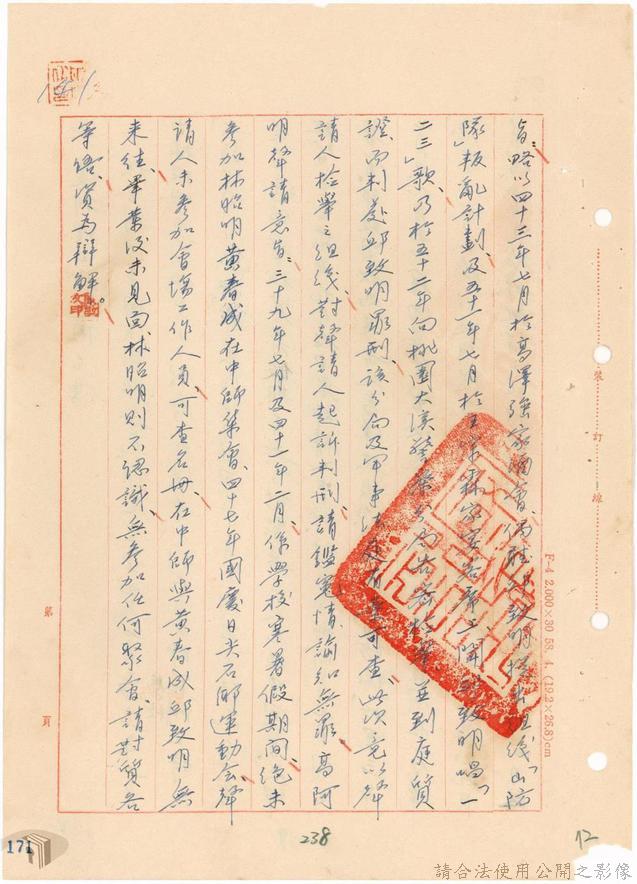 旨：略以四十三年七月於高澤強家酒會、偶聽邱致明提出組織「山防
隊」叛亂計劃、及五十一年七月於王宗霖家客廳門聞邱致明唱「一
二三」歌、乃於五十二年向桃園大溪警察分局告發檢舉並到庭質
證、而判處邱致明罪刑、該分局及軍事法庭有案可查、此次竟以聲
請人檢舉之組織、對聲請人起訴判刑、請鑑冤情、諭知無罪、高阿
明聲請意旨：三十九年七月及四十一年二月、係學校寒暑假期間、絕未
參加林昭明黃春成在中師集會、四十七年國慶日尖石鄉運動會、聲
請人未參加會場工作人員、可查名冊、在中師與黃春成邱致明無
來往、畢業後未見面、林昭明則不認識、無參加任何聚會、請對質各
等語、資為辯解。
第 頁
裝訂線
F-4 2,000×30 58. 4. (19.2×26.8)cm
171
238
12
請合法使用公開之影像